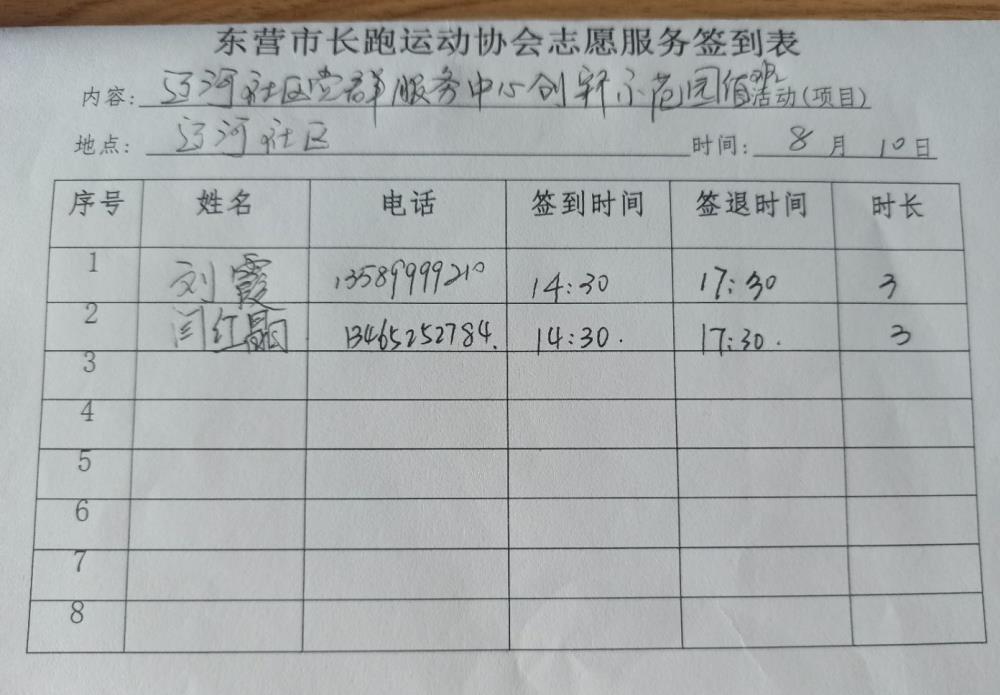 东营市长跑运动协会志愿服务签到表
内容: 辽河社区党群服务中心创 示范园值 活动(项目)
地点: 辽河社区 时间: 8 月 10 日
序号 姓名 电话 签到时间 签退时间 时长
1 刘霞 13589999210 14:30 17:30 3
2 闫红晶 13465252784. 14:30. 17:30. 3
3
4
5
6
7
8